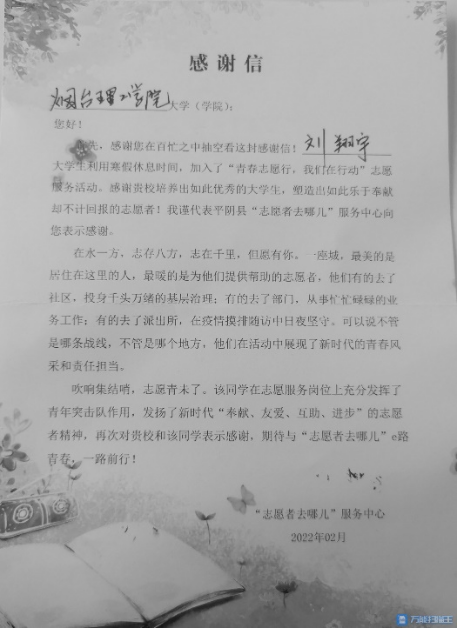 感谢信
烟台理工学院大学（学院）：
您好！
首先，感谢您在百忙之中抽空看这封感谢信！刘翔宇
大学生利用寒假休息时间，加入了“青春志愿行，我们在行动”志愿
服务活动。感谢贵校培养出如此优秀的大学生，塑造出如此乐于奉献
却不计回报的志愿者！我谨代表平阴县“志愿者去哪儿”服务中心向
您表示感谢。
在水一方，志存八方，志在千里，但愿有你。一座城，最美的是
居住在这里的人，最暖的是为他们提供帮助的志愿者，他们有的去了
社区，投身千头万绪的基层治理；有的去了部门，从事忙忙碌碌的业
务工作；有的去了派出所，在疫情摸排随访中日夜坚守。可以说不管
是哪条战线，不管是哪个地方，他们在活动中展现了新时代的青春风
采和责任担当。
吹响集结哨，志愿青未了。该同学在志愿服务岗位上充分发挥了
青年突击队作用，发扬了新时代“奉献、友爱、互助、进步”的志愿
者精神，再次对贵校和该同学表示感谢，期待与“志愿者去哪儿”e路
青春，一路前行！
“志愿者去哪儿”服务中心
2022年02月
万能扫描王